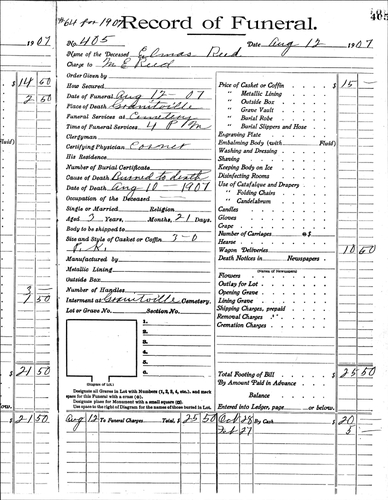 #64 for 1907
Record of Funeral.
405
1907
No. 405
Date Aug 12 1907
Name of the Deceased Elmas Reed
Charge to M. E. Reed
Order Given by
How Secured
Date of Funeral Aug 12 - 07
Place of Death Granitville
Funeral Services at Cemetery
Time of Funeral Services 4 P M
Clergyman
Certifying Physician Coroner
His Residence
Number of Burial Certificate
Cause of Death Burned to death
Date of Death Aug 10 - 1907
Occupation of the Deceased
Single or Married Religion
Aged 3 Years, Months, 21 Days.
Body to be shipped to
Size and Style of Casket or Coffin 3-0
Manufactured by
Metallic Lining
Outside Box
Number of Handles
Interment at Granitville Cemetery.
Lot or Grave No. Section No.
1.
2.
3.
4.
5.
6.
(Diagram of Lot.)
Designate all Graves in Lot with Numbers (1, 2, 3, 4, etc.), and mark
space for this Funeral with a cross (x).
Designate place for Monument with a small square (□).
Use space to the right of Diagram for the names of those buried in Lot.
Aug 12 To Funeral Charges Total, $ 25 50
Price of Casket or Coffin $ 15
" Metallic Lining
" Outside Box
" Grave Vault
" Burial Robe
" Burial Slippers and Hose
Engraving Plate
Embalming Body (with Fluid)
Washing and Dressing
Shaving
Keeping Body on Ice
Disinfecting Rooms
Use of Catafalque and Drapery
" Folding Chairs
" Candelabrum
Candles
Gloves
Crape
Number of Carriages @$
Hearse
Wagon Deliveries 10 50
Death Notices in Newspapers
(Names of Newspapers)
Flowers
Outlay for Lot
Opening Grave
Lining Grave
Shipping Charges, prepaid
Removal Charges
Cremation Charges
Total Footing of Bill $ 25 50
By Amount Paid in Advance
Balance
Entered into Ledger, page or below.
Oct 28 By Cash 20
Feb 27 5
14 50
2 50
Fluid)
3
1 50
21 50
below.
21 50